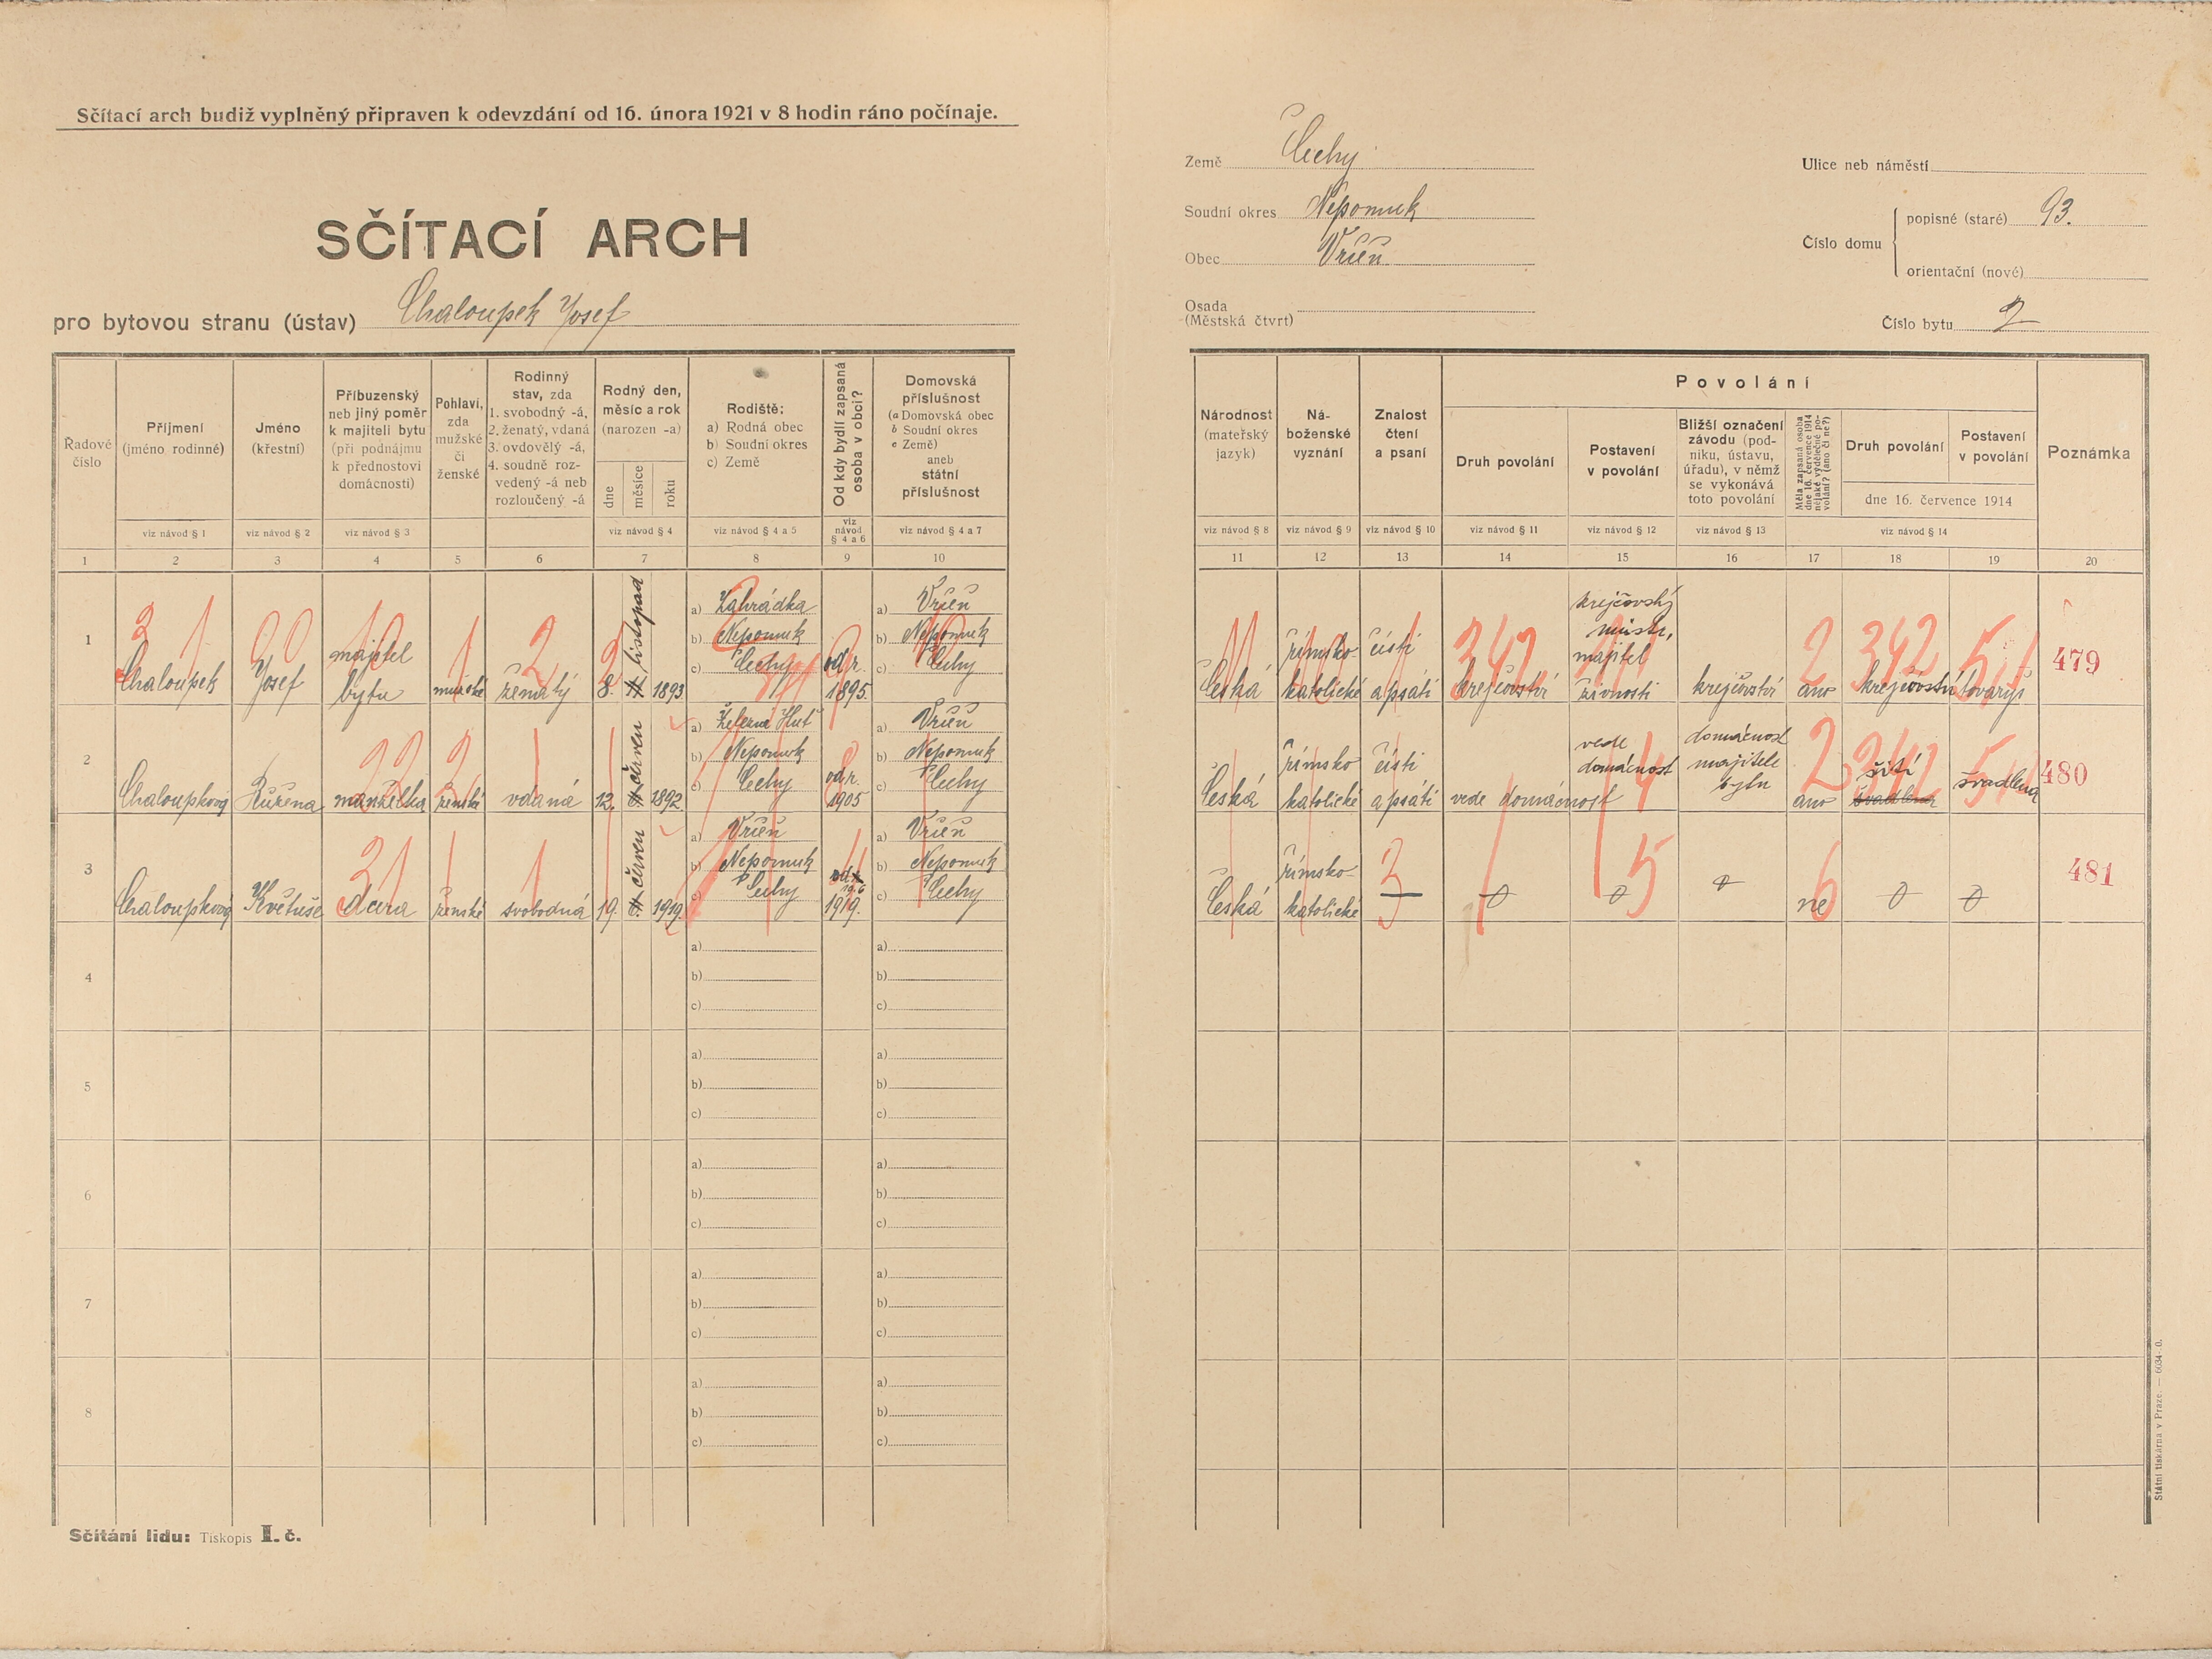 Sčítací arch budiž vyplněný připraven k odevzdání od 16. února 1921 v 8 hodin ráno počínaje.
SČÍTACÍ ARCH
pro bytovou stranu (ústav) Chaloupek Josef
Země Čechy
Soudní okres Nepomuk
Obec Vrčeň
Osada
(Městská čtvrt)
Ulice neb náměstí
Číslo domu
popisné (staré) 93.
orientační (nové)
Číslo bytu 2
Řadové číslo
Příjmení (jméno rodinné)
Jméno (křestní)
Příbuzenský neb jiný poměr k majiteli bytu (při podnájmu k přednostovi domácnosti)
Pohlaví, zda mužské či ženské
Rodinný stav, zda 1. svobodný -á, 2. ženatý, vdaná 3. ovdovělý -á, 4. soudně rozvedený -á neb rozloučený -á
Rodný den, měsíc a rok (narozen -a)
dne měsíce roku
Rodiště: a) Rodná obec b) Soudní okres c) Země
Od kdy bydlí zapsaná osoba v obci?
Domovská příslušnost (a Domovská obec b Soudní okres c Země) aneb státní příslušnost
Národnost (mateřský jazyk)
Náboženské vyznání
Znalost čtení a psaní
Povolání
Druh povolání
Postavení v povolání
Bližší označení závodu (podniku, ústavu, úřadu), v němž se vykonává toto povolání
Měla zapsaná osoba dne 16. července 1914 nějaké výdělečné povolání? (ano či ne?)
Druh povolání
Postavení v povolání
dne 16. července 1914
Poznámka
viz návod § 1 viz návod § 2 viz návod § 3 viz návod § 4 viz návod § 4 a 5 viz návod § 4 a 6 viz návod § 4 a 7
viz návod § 8 viz návod § 9 viz návod § 10 viz návod § 11 viz návod § 12 viz návod § 13 viz návod § 14
1 2 3 4 5 6 7 8 9 10 11 12 13 14 15 16 17 18 19 20
1 Chaloupek Josef majitel bytu mužské ženatý 8. listopad 1893
a) Zahrádka
b) Nepomuk
c) Čechy
od r. 1895.
a) Vrčeň
b) Nepomuk
c) Čechy
Česká římsko-katolické čísti a psáti krejčovství krejčovský mistr, majitel živnosti krejčovství ano krejčovství tovaryš 479
2 Chaloupková Růžena manželka ženské vdaná 12. červen 1892
a) Železná Huť
b) Nepomuk
c) Čechy
od r. 1905
a) Vrčeň
b) Nepomuk
c) Čechy
Česká římsko katolické čísti a psáti vede domácnost vede domácnost domácnost majitele bytu ano šití švadlena švadlena 480
3 Chaloupková Květuše dcera ženské svobodná 19. červen 1919.
a) Vrčeň
b) Nepomuk
c) Čechy
1919.
a) Vrčeň
b) Nepomuk
c) Čechy
Česká římsko-katolické — 0 0 0 ne 0 0 481
4
a)
b)
c)
a)
b)
c)
5
a)
b)
c)
a)
b)
c)
6
a)
b)
c)
a)
b)
c)
7
a)
b)
c)
a)
b)
c)
8
a)
b)
c)
a)
b)
c)
Sčítání lidu: Tiskopis I. č.
Státní tiskárna v Praze. — 6034-0.